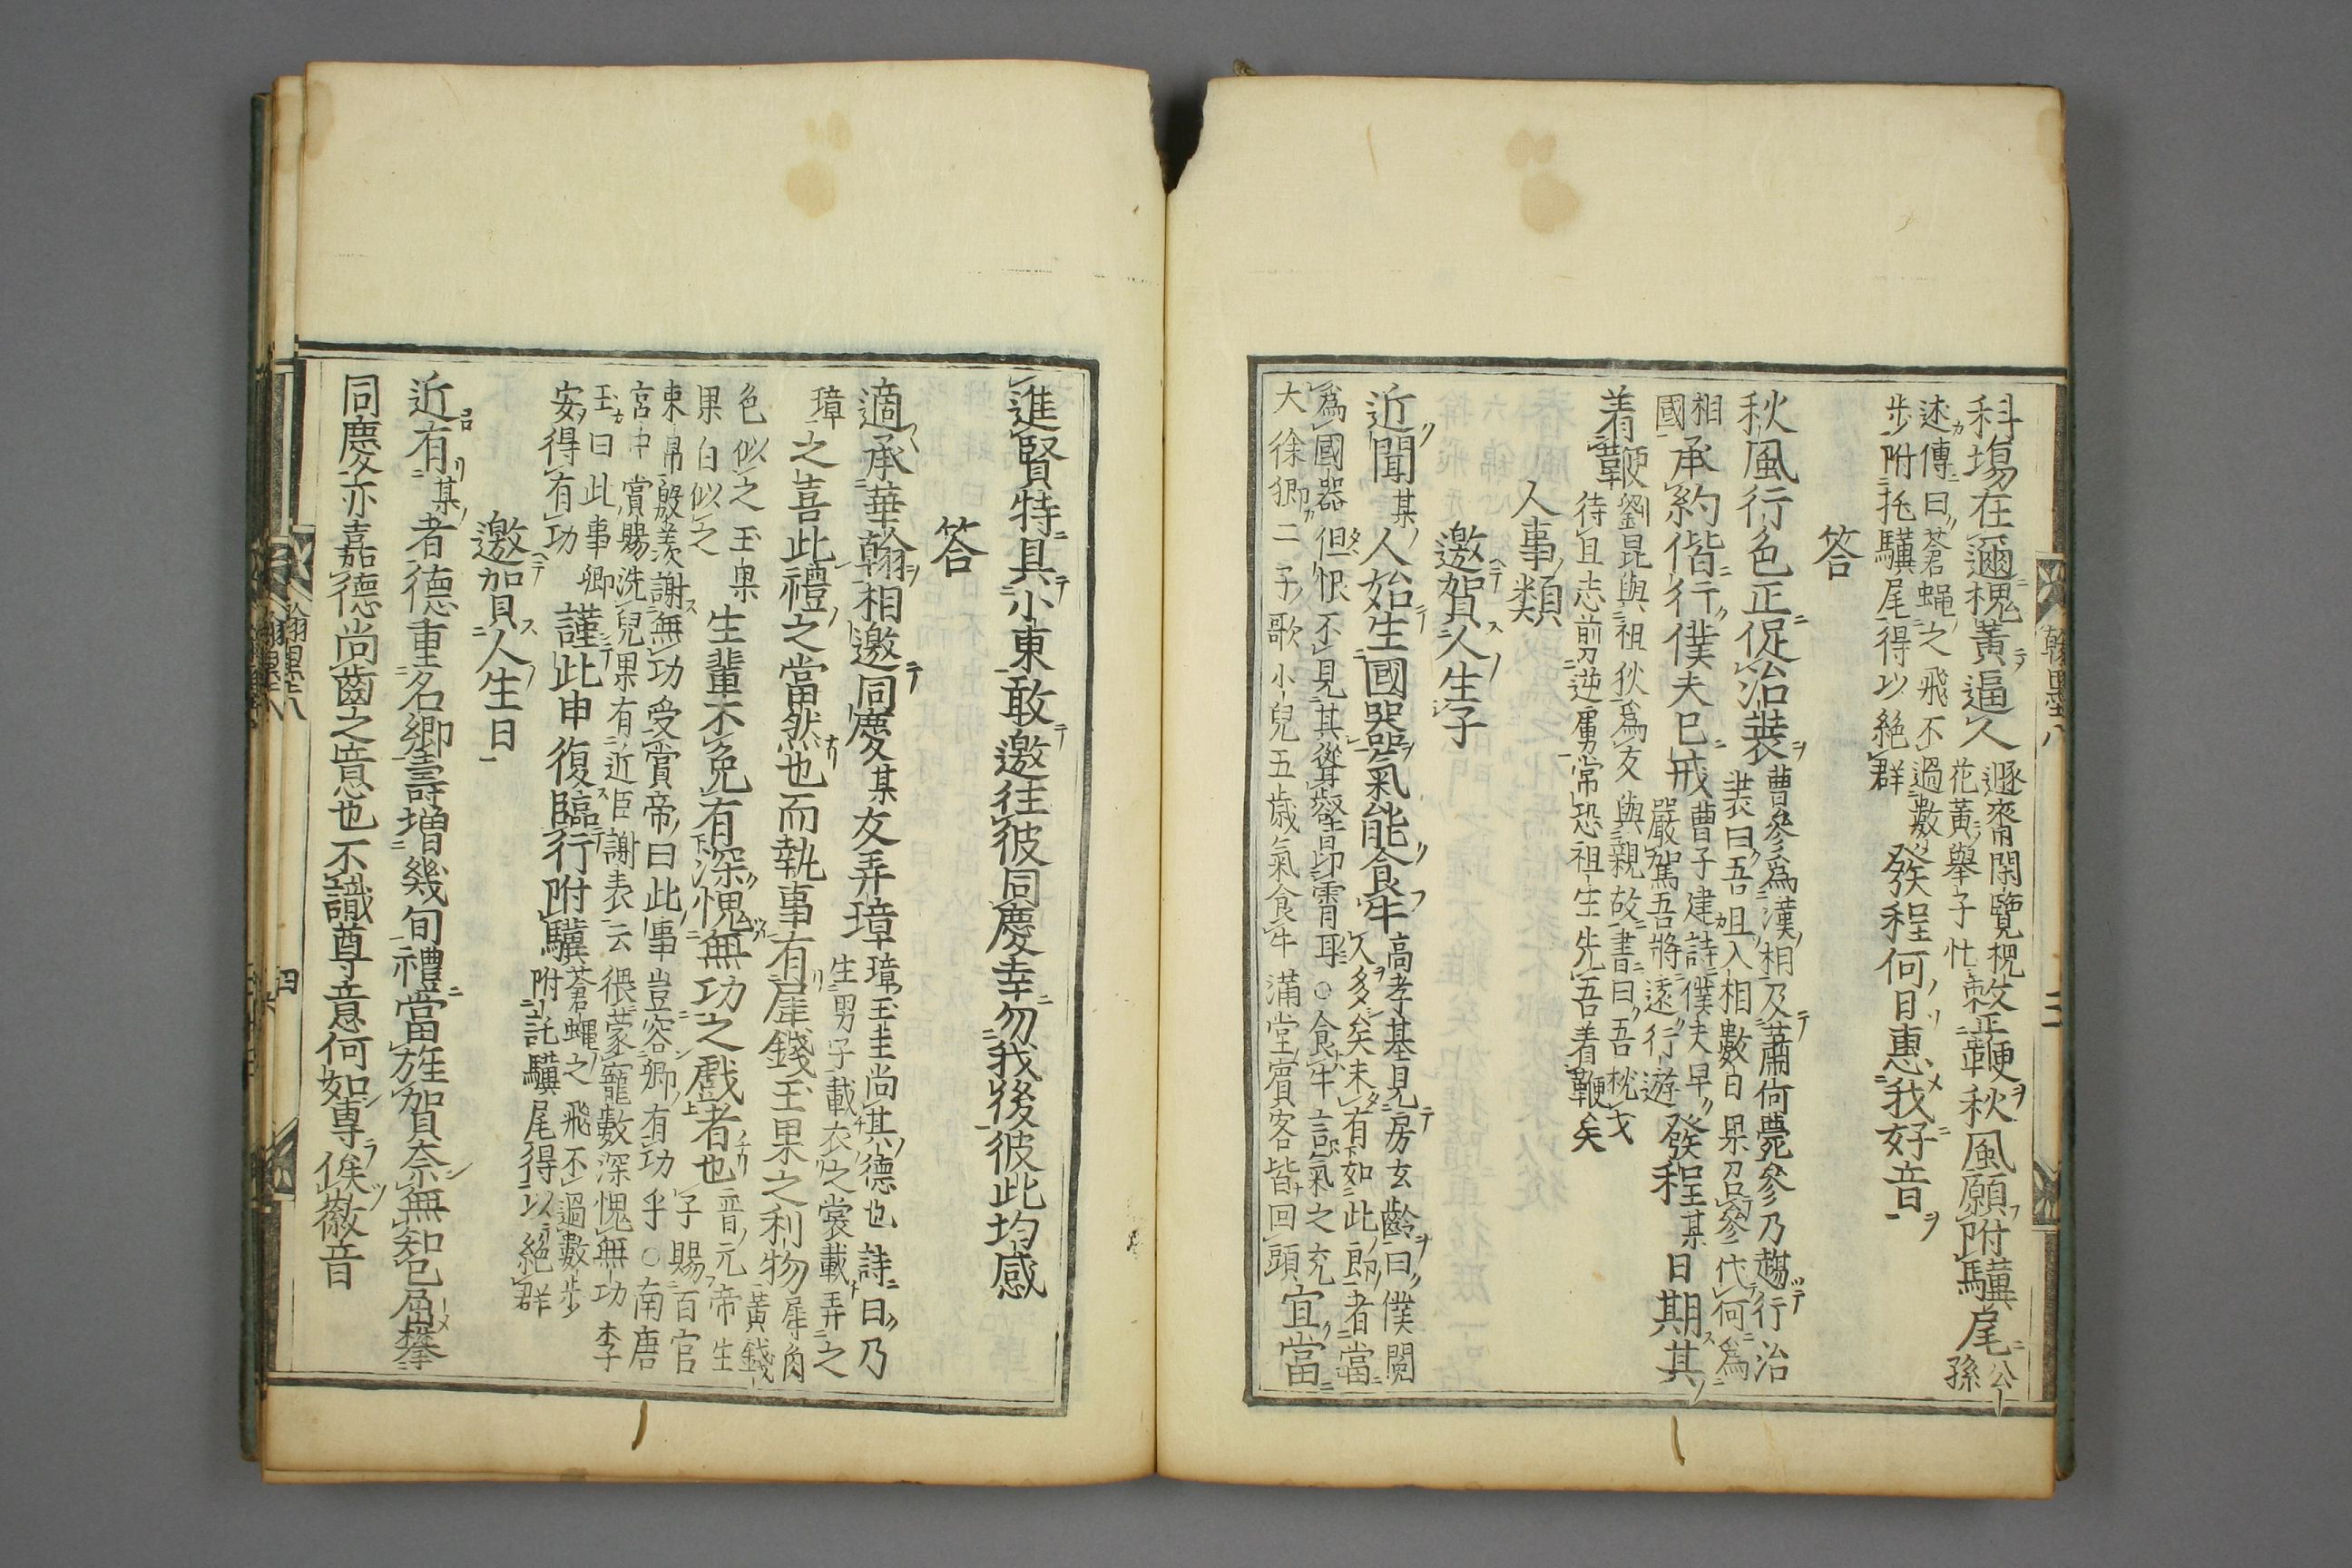 科場在邇槐黃逼人
遯齋閑覽槐
花黃舉子忙
整鞭秋風願附驥尾
公孫
述傳曰蒼蝿之飛不過數
步附托驥尾得以絶群
發程何日惠我好音
答
秋風行色正促治裝
曹參爲漢相及蕭何薨參乃趨行治
裝曰吾且入相數日果召參代何爲
相
國
承約偕行僕夫已戒
曹子建詩僕夫早
嚴駕吾將遠行遊
發程某日期其
着鞭
劉昆與祖狄爲友與親故書曰吾枕戈
待旦志前刃逆虜常恐祖生先吾着鞭矣
人事類
邀賀人生子
近聞某人始生國器氣能食牛
高孝基見房玄齡曰僕閱
人多矣未有如此郎者當
爲國器但恨不見其聳壑昂霄耳○食牛言氣之充
大徐卿二子歌小兒五歲氣食牛滿堂賓客皆回頭
宜當
翰墨八
進賢特具小東敢邀往彼同慶幸勿我後彼此均感
答
適承華翰相邀同慶某友弄璋
璋玉圭尚其德也詩曰乃
生男子載衣之裳載弄之
璋
之喜此禮之當然也而執事有犀錢玉果之利物
犀角
黃錢
色似之玉果
果白似之
生輩不免有深愧無功之戲者也
晉元帝生
子賜百官
束帛殷羨謝無功受賞帝曰此事豈容卿有功乎○南唐
宮中賞賜洗兒果有近臣謝表云猥蒙寵數深愧無功李
主曰此事卿
安得有功
謹此申復臨行附驥
蒼蠅之飛不過數步
附託驥尾得以絶群
邀加賀人生日
近有某者德重名卿壽增幾旬禮當旌賀奈無知己屈攀
同慶亦嘉德尚齒之意也不識尊意何如專俟徽音
翰墨八